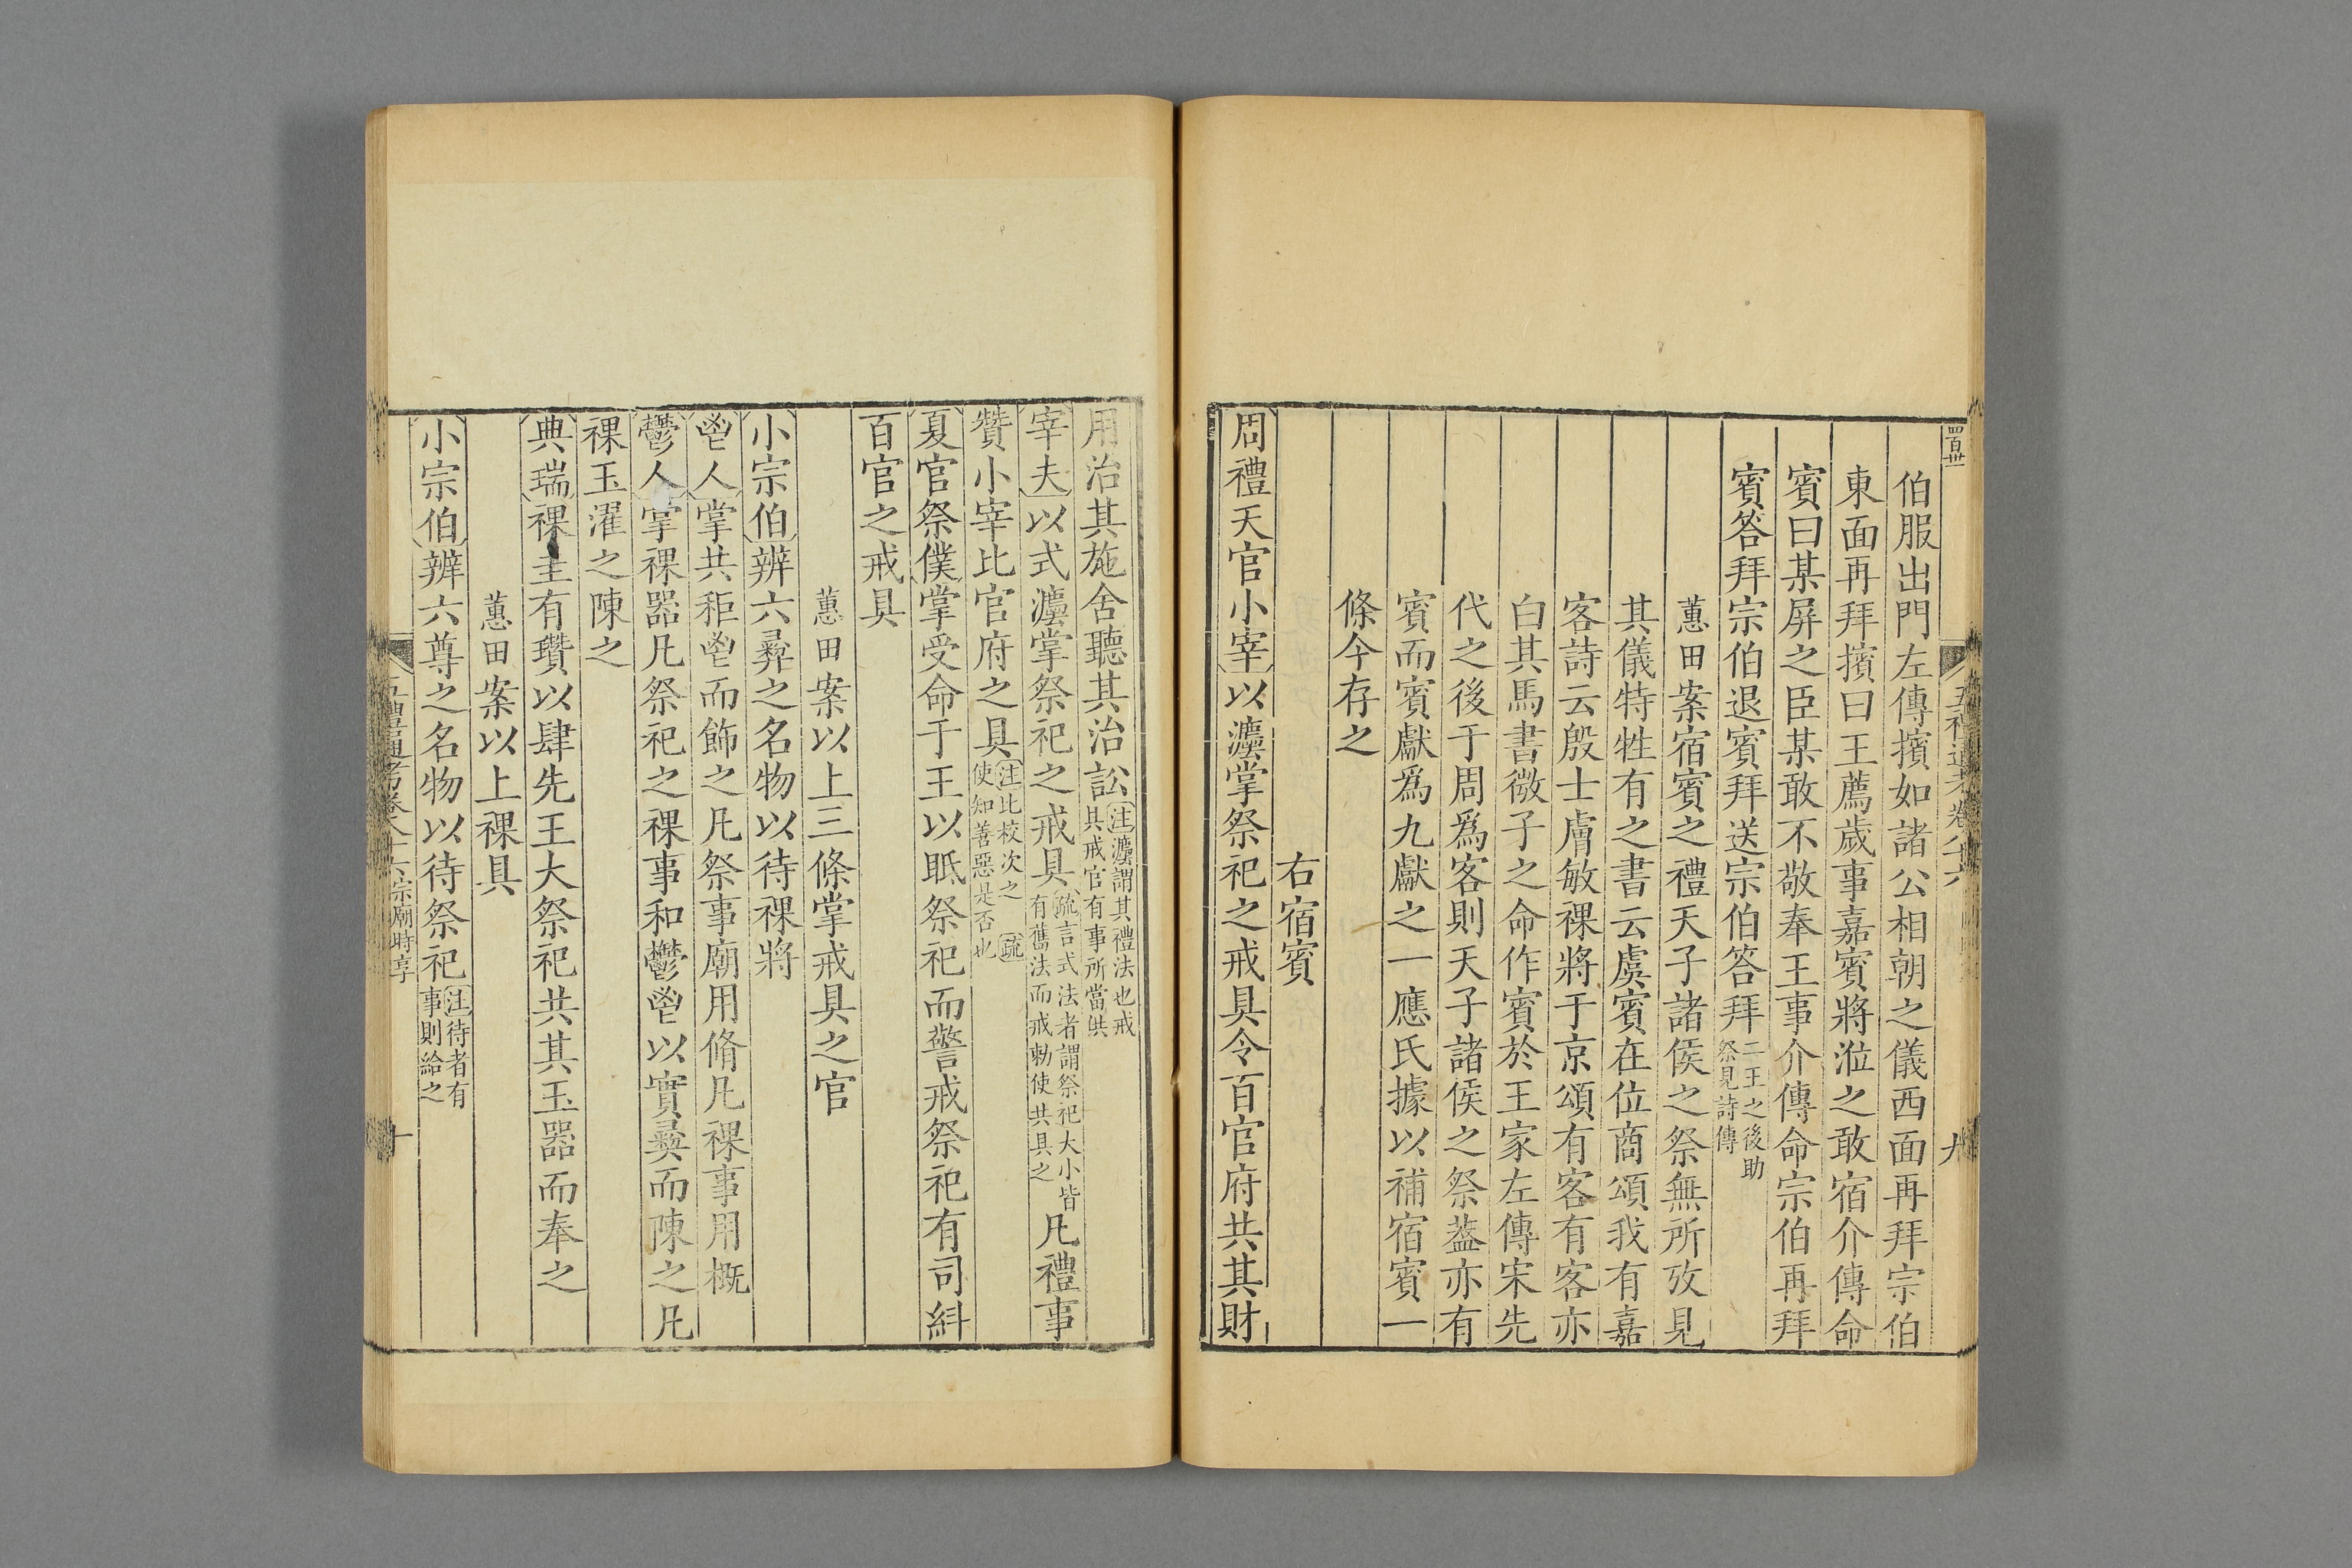 伯服出門左傳擯如諸公相朝之儀西面再拜宗伯
東面再拜擯曰王薦歲事嘉賓將涖之敢宿介傳命
賓曰某屏之臣某敢不敬奉王事介傳命宗伯再拜
賓答拜宗伯退賓拜送宗伯答拜二王之後助祭見詩傳
蕙田案宿賓之禮天子諸侯之祭無所攷見
其儀特牲有之書云虞賓在位商頌我有嘉
客詩云殷士膚敏祼將于京頌有客有客亦
白其馬書微子之命作賓於王家左傳宋先
代之後于周爲客則天子諸侯之祭葢亦有
賓而賓獻爲九獻之一應氏據以補宿賓一
條今存之
右宿賓
周禮天官小宰以灋掌祭祀之戒具令百官府共其財
用治其施舍聽其治訟注灋謂其禮法也戒具戒官有事所當供
宰夫以式灋掌祭祀之戒具疏言式法者謂祭祀大小皆有舊法而戒勅使共具之凡禮事
贊小宰比官府之具注比校次之疏使知善惡是否也
夏官祭僕掌受命于王以眡祭祀而警戒祭祀有司糾
百官之戒具
蕙田案以上三條掌戒具之官
小宗伯辨六彞之名物以待祼將
鬯人掌共秬鬯而飾之凡祭事廟用脩凡祼事用概
鬱人掌祼器凡祭祀之祼事和鬱鬯以實彞而陳之凡
祼玉濯之陳之
典瑞祼圭有瓚以肆先王大祭祀共其玉器而奉之
蕙田案以上祼具
小宗伯辨六尊之名物以待祭祀注待者有事則給之
四百卅
五禮通考卷八十六
九
五禮通考卷八十六宗廟時享
十